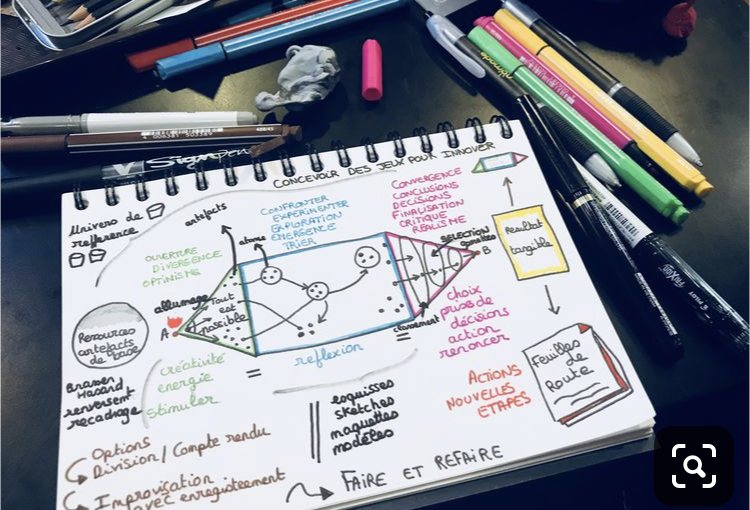 CONCEVOIR DES JEUX POUR INNOVER
Univers de
reference
artefacts
atome
CONFRONTER
EXPERIMENTER
EXPLORATION
EMERGENCE
TRIER
CONVERGENCE
CONCLUSIONS
DECISIONS
FINALISATION
CRITIQUE
REALISME
OUVERTURE
DIVERGENCE
OPTIMISME
SELECTION
B
resultat
tangible
allumage
A
Tout
est
possible
Ressources
artefacts
de base
Brasser
Hasard
renversent
recadrage
créativité
energie
stimuler
=
reflexion
=
classement
choix
prise de
décisions
action
renoncer
Feuilles
de
Route
ACTIONS
NOUVELLES
ETAPES
esquisses
sketches
maquettes
modèles
Options
Division / Compte rendu
Improvisation
avec enregistement
FAIRE ET REFAIRE
Signpen
PILOT